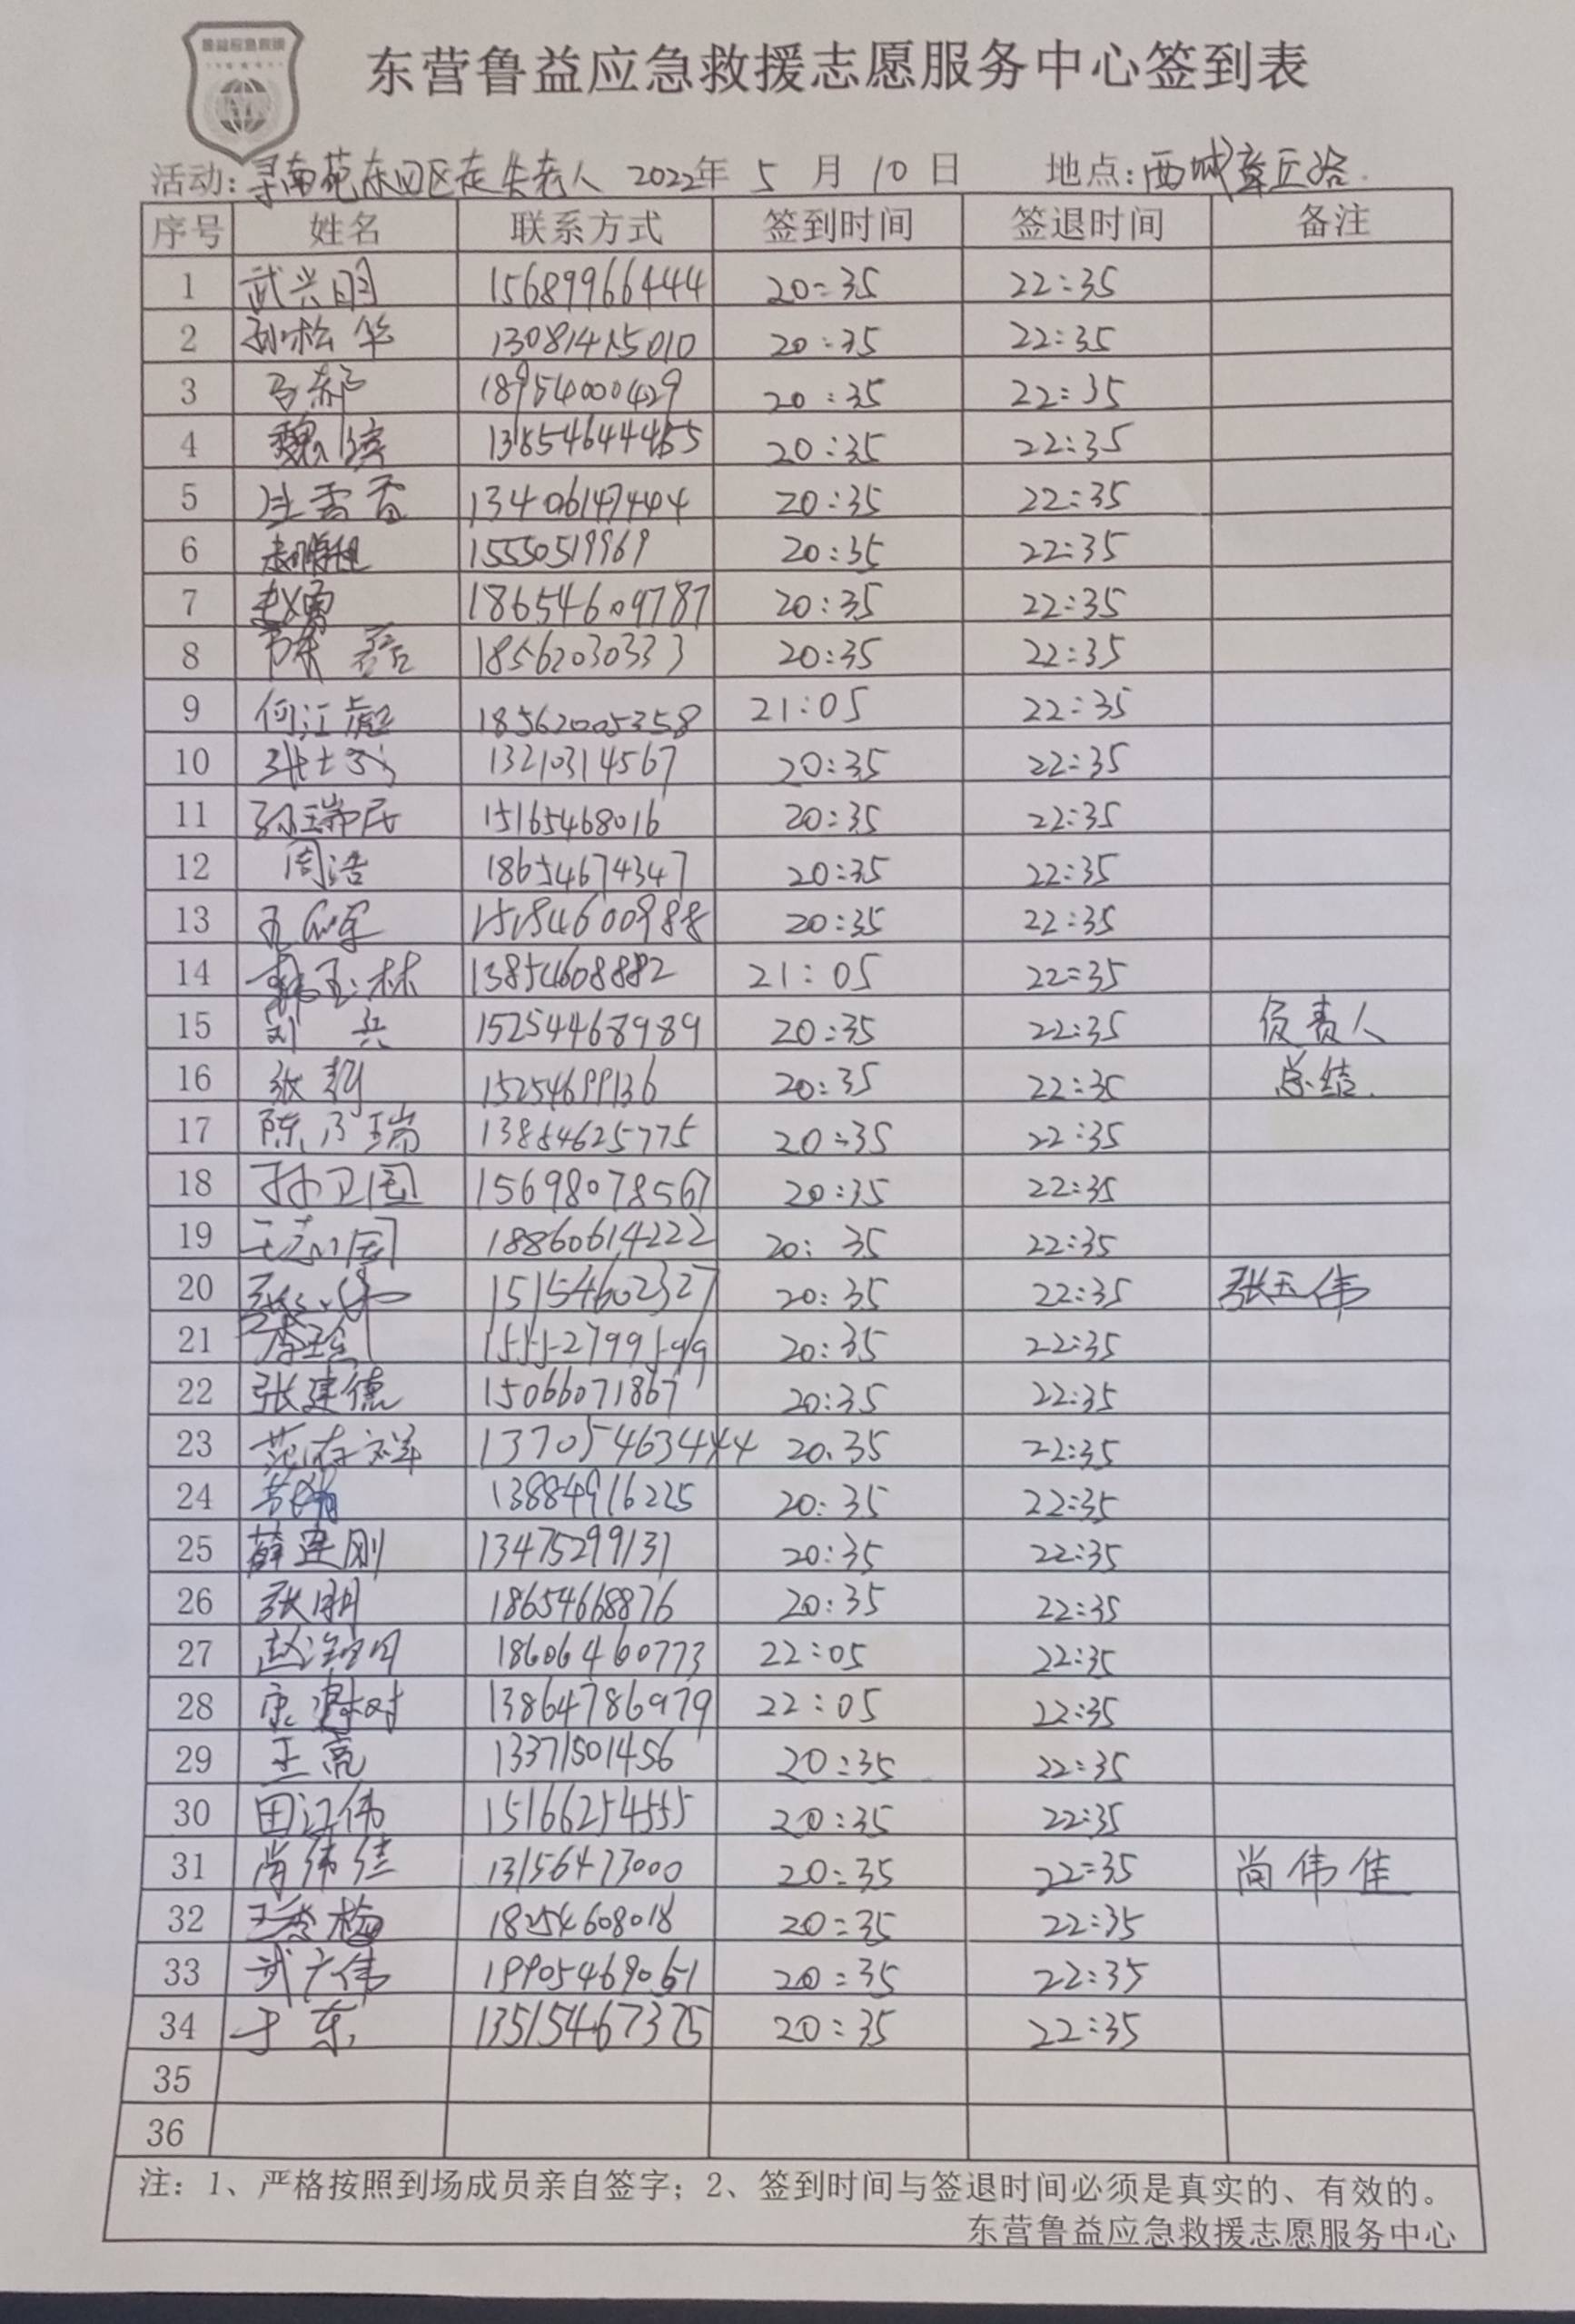 鲁益应急救援
东营鲁益应急救援志愿服务中心签到表
活动:寻南苑东四区走失老人 2022年 5 月 10 日 地点:西城章丘路
序号 姓名 联系方式 签到时间 签退时间 备注
1 武兴明 15689966444 20:35 22:35
2 孙松华 13081415010 20:35 22:35
3 18954000429 20:35 22:35
4 魏 13854644455 20:35 22:35
5 13406147444 20:35 22:35
6 15550519969 20:35 22:35
7 赵勇 18654609787 20:35 22:35
8 18562030333 20:35 22:35
9 何江 18562005358 21:05 22:35
10 张士 13210314567 20:35 22:35
11 孙瑞民 15165468016 20:35 22:35
12 周浩 18654674347 20:35 22:35
13 军 15154600988 20:35 22:35
14 韩玉林 13854608882 21:05 22:35
15 刘兵 15254468989 20:35 22:35 负责人
16 张 15254699136 20:35 22:35 总结
17 陈乃瑞 13854625775 20:35 22:35
18 孙卫国 15698078567 20:35 22:35
19 王志国 18860614222 20:35 22:35
20 15154602327 20:35 22:35 张玉伟
21 李 15552799599 20:35 22:35
22 张建德 15066071867 20:35 22:35
23 范存祥 13705463444 20:35 22:35
24 13884916225 20:35 22:35
25 薛建刚 13475299131 20:35 22:35
26 张明 18654668876 20:35 22:35
27 赵 18606460773 22:05 22:35
28 13864786979 22:05 22:35
29 王亮 13371501456 20:35 22:35
30 田江伟 15166254555 20:35 22:35
31 尚伟佳 13156473000 20:35 22:35 尚伟佳
32 王秀梅 18254608018 20:35 22:35
33 武广伟 19905469061 20:35 22:35
34 于东 13515467375 20:35 22:35
35
36
注:1、严格按照到场成员亲自签字;2、签到时间与签退时间必须是真实的、有效的。
东营鲁益应急救援志愿服务中心